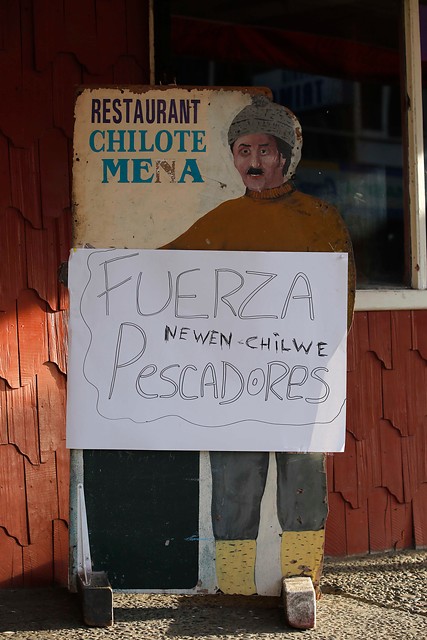 RESTAURANT
CHILOTE
MENA
FUERZA
NEWEN-CHiLWE
PESCADORES